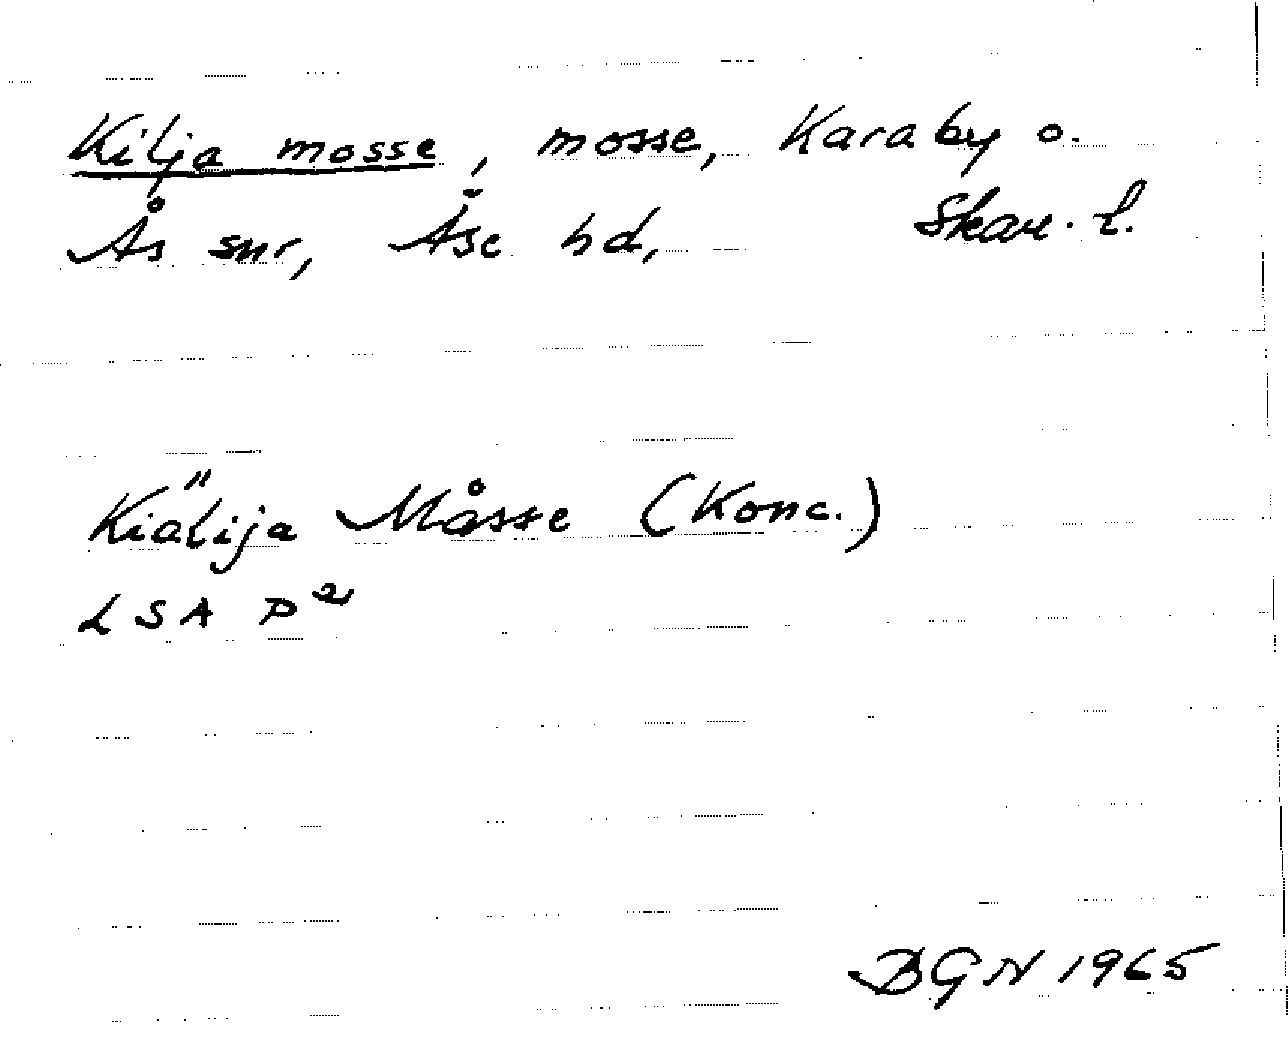 Kilja mosse, mosse, Karaby o.
Ås snr, Åse hd, Skar. l.
Kiälija Måsse (Konc.)
LSA P²
BGN 1965